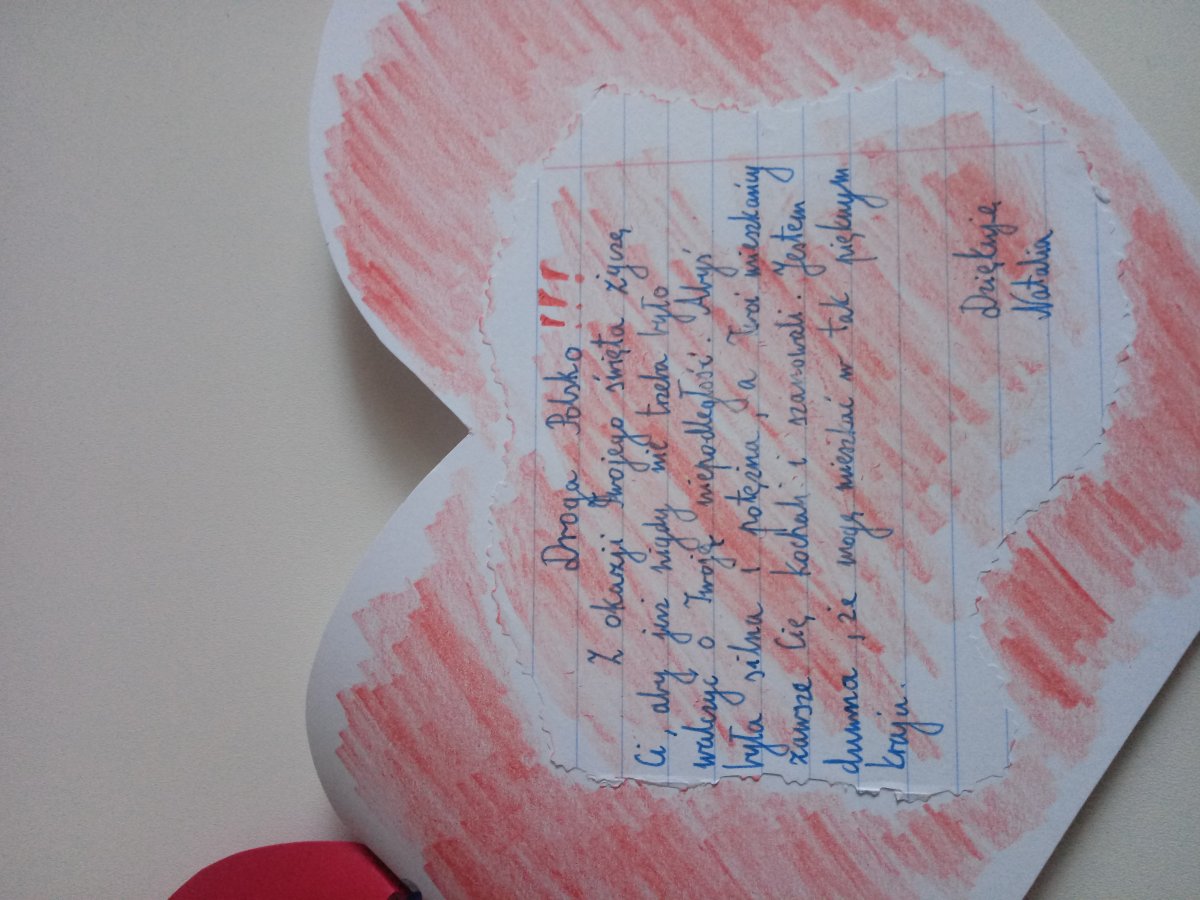 Droga Polsko !!!
Z okazji Twojego święta życzę
Ci, aby już nigdy nie trzeba było
walczyć o Twoję niepodległość. Abyś
była silna i potężna, a Twoi mieszkańcy
zawsze Cię kochali i szanowali. Jestem
dumna, że mogę mieszkać w tak pięknym
kraju.
Dziękuję
Natalia